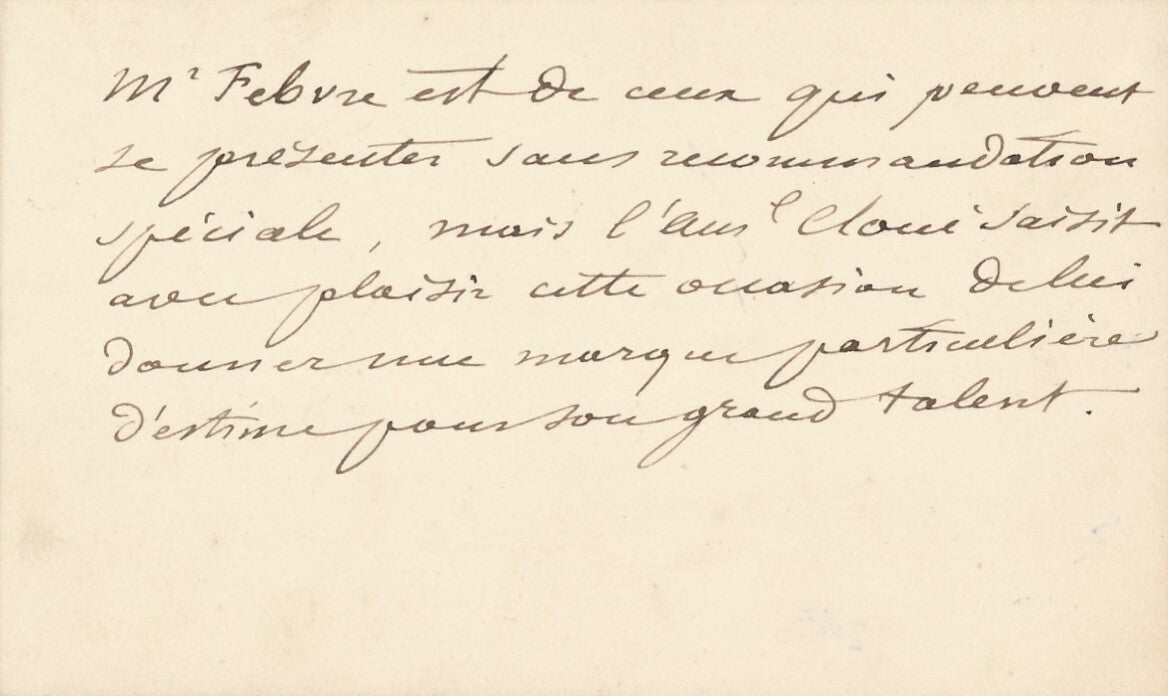 Mr Febvre est de ceux qui peuvent
se présenter sans recommandation
spéciale, mais l'Aml Cloué saisit
avec plaisir cette occasion de lui
donner une marque particulière
d'estime pour son grand talent.